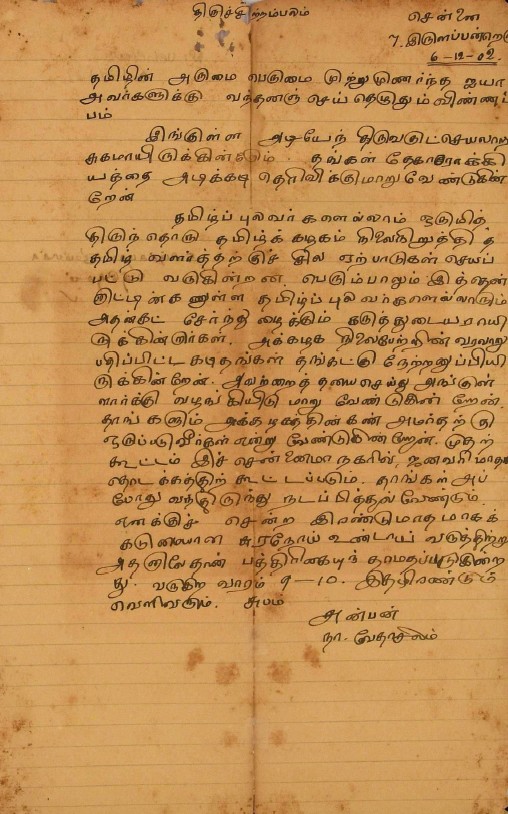 திருச்சிற்றம்பலம்
சென்னை
7, இருளப்பன்தெரு
6-12-02.
தமிழின் அருமை பெருமை முற்றுமுணர்ந்த ஐயா
அவர்களுக்கு வந்தனஞ் செய்தெழுதும் விண்ணப்
பம்
இங்குள்ள அடியேந் திருவருட்செயலால்
சுகமாயிருக்கின்றேம். தங்கள் தேகாரோக்கி
யத்தை அடிக்கடி தெரிவிக்குமாறு வேண்டுகின்
றேன்
தமிழ்ப்புலவர்களெல்லாம் ஒருமித்
திருந்தொரு தமிழ்க் கழகம் நிலைநிறுத்தித்
தமிழ் வளர்த்தற்குச் சில ஏற்பாடுகள் செய்யப்
பட்டு வருகின்றன பெரும்பாலும் இத்தென்
னாட்டின்கணுள்ள தமிழ்ப்புலவர்களெல்லாரும்
அதன்கட் சேர்ந்திழைக்கும் கருத்துடையராயி
ருக்கின்றார்கள். அக்கழக நிலைபேற்றின் வரலாறு
பதிப்பிட்ட கடிதங்கள் தங்கட்கு நேற்றனுப்பியி
ருக்கின்றேன். அவற்றைத் தயைசெய்து அங்குள்
ளார்க்கு வழங்கியிடுமாறு வேண்டுகின்றேன்.
தாங்களும் அக்கழகத்தின்கண் அமர்தற்கு
ஒருப்படுவீர்கள் என்று வேண்டுகின்றேன். முதற்
கூட்டம் இச் சென்னைமாநகரில், ஜனவரி மாதத்
தொடக்கத்திற் கூட்டப்படும். தாங்கள் அப்
போது வந்திருந்து நடப்பித்தல் வேண்டும்.
எனக்குச் சென்ற இரண்டுமாதமாகக்
கடுமையான சுரநோய் உண்டாய் வருத்திற்று
அதனாலேதான் பத்திரிகையுந் தாமதப்படுகின்ற
து. வருகிற வாரம் 9-10. இதழிரண்டும்
வெளிவரும். சுபம்
அன்பன்
நா. வேதாசலம்